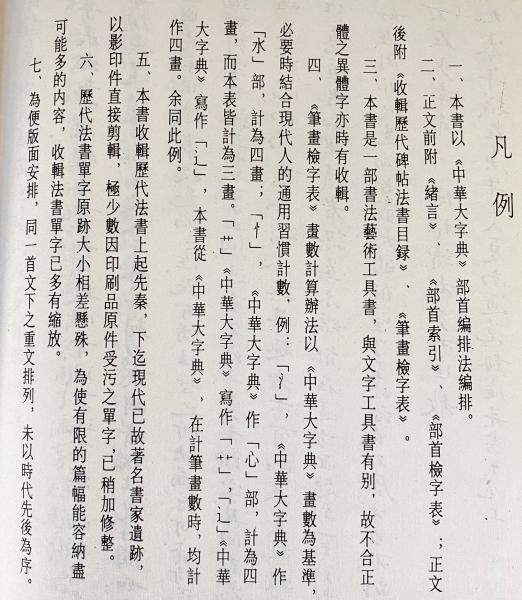 凡例
一、本書以《中華大字典》部首編排法編排。
二、正文前附《緒言》、《部首索引》、《部首檢字表》；正文
後附《收輯歷代碑帖法書目録》、《筆畫檢字表》。
三、本書是一部書法藝術工具書，與文字工具書有别，故不合正
體之異體字亦時有收輯。
四、《筆畫檢字表》畫數計算辦法以《中華大字典》畫數為基準，
必要時結合現代人的通用習慣計數，例：「氵」，《中華大字典》作
「水」部，計為四畫；「忄」，《中華大字典》作「心」部，計為四
畫，而本表皆計為三畫。「艹」《中華大字典》寫作「艹」，「辶」《中華
大字典》寫作「辶」，本書從《中華大字典》，在計筆畫數時，均計
作四畫。余同此例。
五、本書收輯歷代法書上起先秦，下迄現代已故著名書家遺跡，
以影印件直接剪輯，極少數因印刷品原件受污之單字，已稍加修整。
六、歷代法書單字原跡大小相差懸殊，為使有限的篇幅能容納盡
可能多的内容，收輯法書單字已多有縮放。
七、為便版面安排，同一首文下之重文排列，未以時代先後為序。